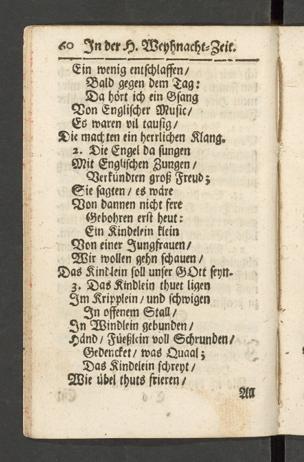 60 In der H. Weyhnacht-Zeit.
Ein wenig entschlaffen /
Bald gegen dem Tag:
Da hört ich ein Gsang
Von Englischer Music /
Es waren vil tausig /
Die machten ein herrlichen Klang.
2. Die Engel da sungen
Mit Englischen Zungen /
Verkündten groß Freud;
Sie sagten / es wäre
Von dannen nicht fere
Gebohren erst heut:
Ein Kindelein klein
Von einer Jungfrauen /
Wir wollen gehn schauen /
Das Kindlein soll unser GOtt seyn.
3. Das Kindlein thuet ligen
Im Kripplein / und schwigen
In offenem Stall /
In Windlein gebunden /
Händ / Füeßlein voll Schrunden /
Gedencket / was Quaal;
Das Kindelein schreyt /
Wie übel thuts frieren /
All